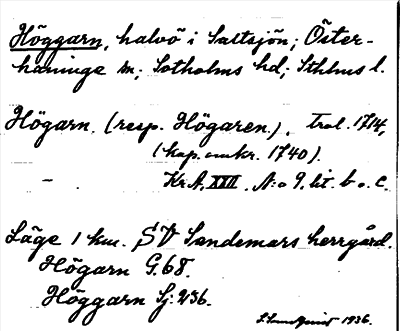 Höggarn, halvö i Saltsjön; Öster-
haninge sn; Sotholms hd; Sthlms l.
Högarn, (resp. Högaren.), tral. 1714,
(kap. omkr. 1740).
– Kr.A, XXII, N:o 9, lit. b o. c.
Läge 1 km. SV Sandemars herrgård.
Högarn G. 68.
Höggarn Sj: 236.
1936.